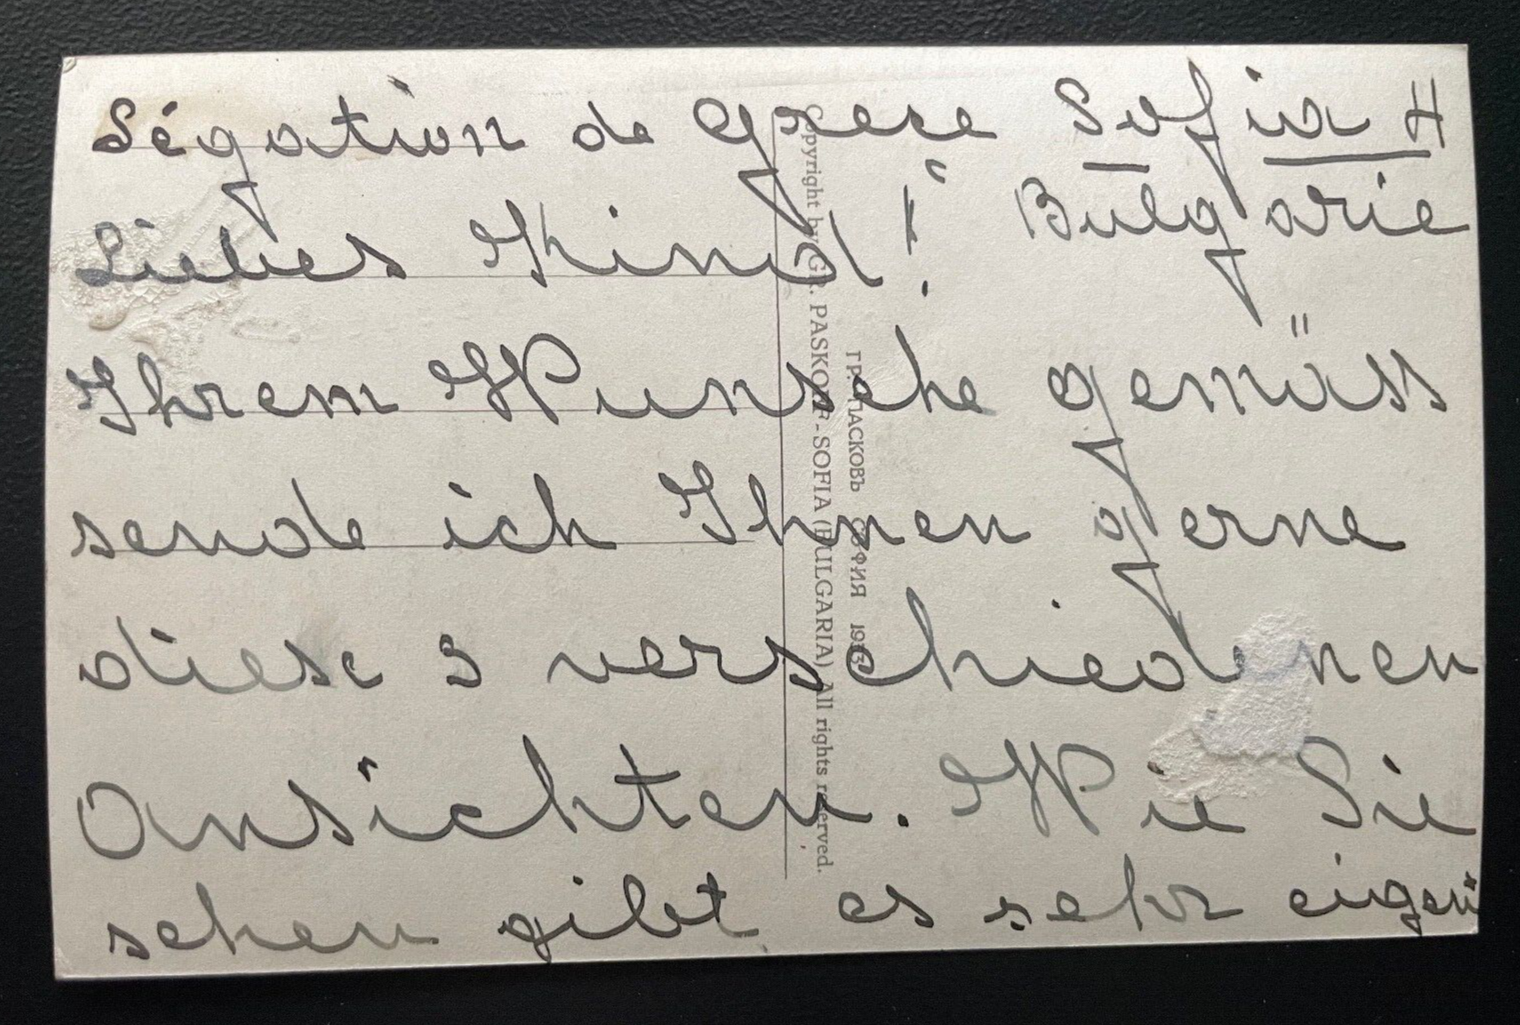 Légation de Grèce Sofia 4
Bulgarie
Liebes Kind!
Ihrem Wunsche gemäss
sende ich Ihnen gerne
diese 3 verschiedenen
Ansichten. Wie Sie
sehen gibt es sehr eigen
Copyright by GR. PASKOFF - SOFIA (BULGARIA) All rights reserved.
ГР. ПАСКОВЪ СОФИЯ